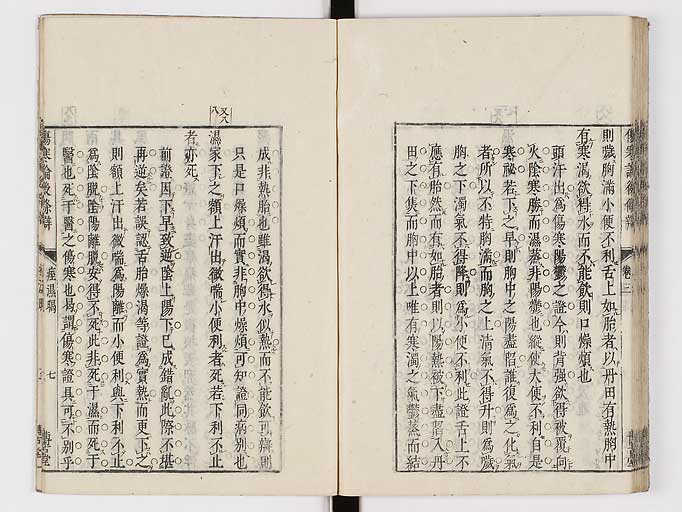 則噦胸滿小便不利舌上如胎者以丹田有熱胸中
有寒渴欲得水而不能飲則口燥煩也
頭汗出為傷寒陽鬱之證今則背強欲得被覆向
火陰寒勝而濕蒸非陽鬱也縱使大便不利自是
寒祕若下之早則胸中之陽盡陷誰復為之化氣
者所以不特胸滿而胸之上清氣不得升則為噦
胸之下濁氣不得降則為小便不利此證舌上不
應有胎然而有如胎者則以陽熱被下盡陷入丹
田之下隻而胸中以上唯有寒濁之氣鬱蒸而結
成非熱胎也雖渴欲得水似熱而不能飲可辨則
只是口燥煩而實非胸中燥煩可知證同病別也
又八
八
濕家下之額上汗出微喘小便利者死若下利不止
者亦死
前證因下早致逆陰上陽下已成錯亂此際不堪
再逆矣若誤認舌胎燥渴等證為實熱而更下之
則額上汗出微喘為陽離而小便利與下利不止
為陰脫陰陽離脫安得不死此非死于濕而死于
醫也死于醫之傷寒也易謂傷寒證具可不別乎
傷寒論後條辨
痙濕暍
七
卷三